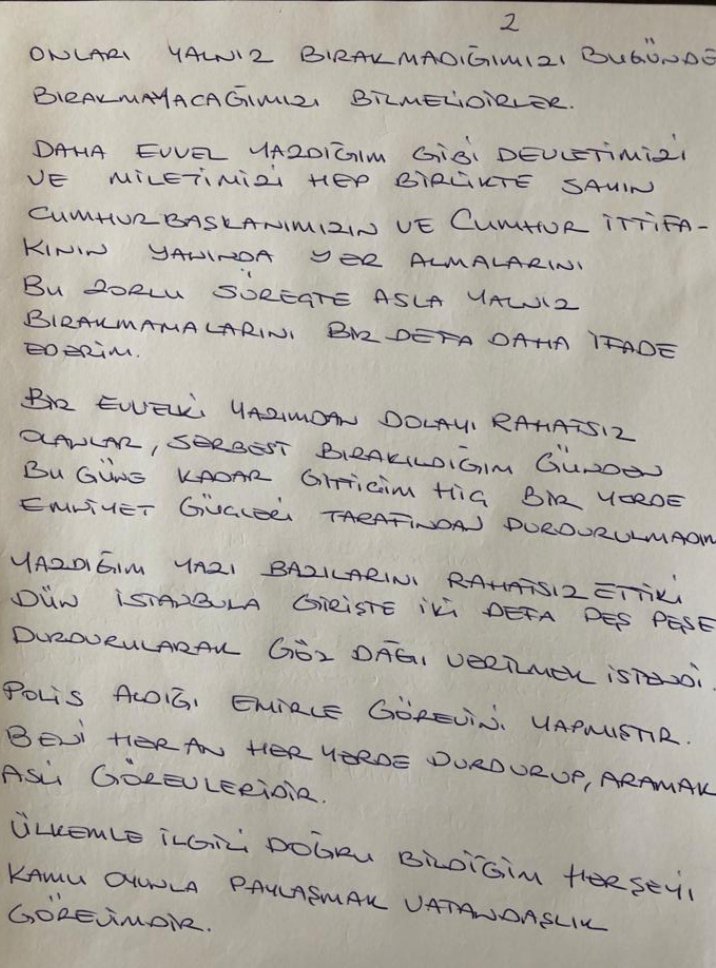 2
ONLARI YALNIZ BIRAKMADIĞIMIZI BUGÜNDE
BIRAKMAYACAĞIMIZI BİLMELİDİRLER.
DAHA EVVEL YAZDIĞIM GİBİ DEVLETİMİZİ
VE MİLETİMİZİ HEP BİRLİKTE SAYIN
CUMHURBAŞKANIMIZIN VE CUMHUR İTTİFA-
KININ YANINDA YER ALMALARINI
BU ZORLU SÜREÇTE ASLA YALNIZ
BIRAKMAMALARINI BİR DEFA DAHA İFADE
EDERİM.
BİR EVVELKİ YAZIMDAN DOLAYI RAHATSIZ
OLANLAR, SERBEST BIRAKILDIĞIM GÜNDEN
BU GÜNE KADAR GİTTİĞİM HİÇ BİR YERDE
EMNİYET GÜÇLERİ TARAFINDAN DURDURULMADIM
YAZDIĞIM YAZI BAZILARINI RAHATSIZ ETTİKİ
DÜN İSTANBULA GİRİŞTE İKİ DEFA PEŞ PEŞE
DURDURULARAK GÖZ DAĞI VERİLMEK İSTENDİ.
POLİS ALDIĞI EMİRLE GÖREVİNİ YAPMIŞTIR.
BENİ HER AN HER YERDE DURDURUP, ARAMAK
ASLİ GÖREVLERİDİR.
ÜLKEMLE İLGİLİ DOĞRU BİLDİĞİM HERŞEYİ
KAMU OYUNLA PAYLAŞMAK VATANDAŞLIK
GÖREVİMDİR.